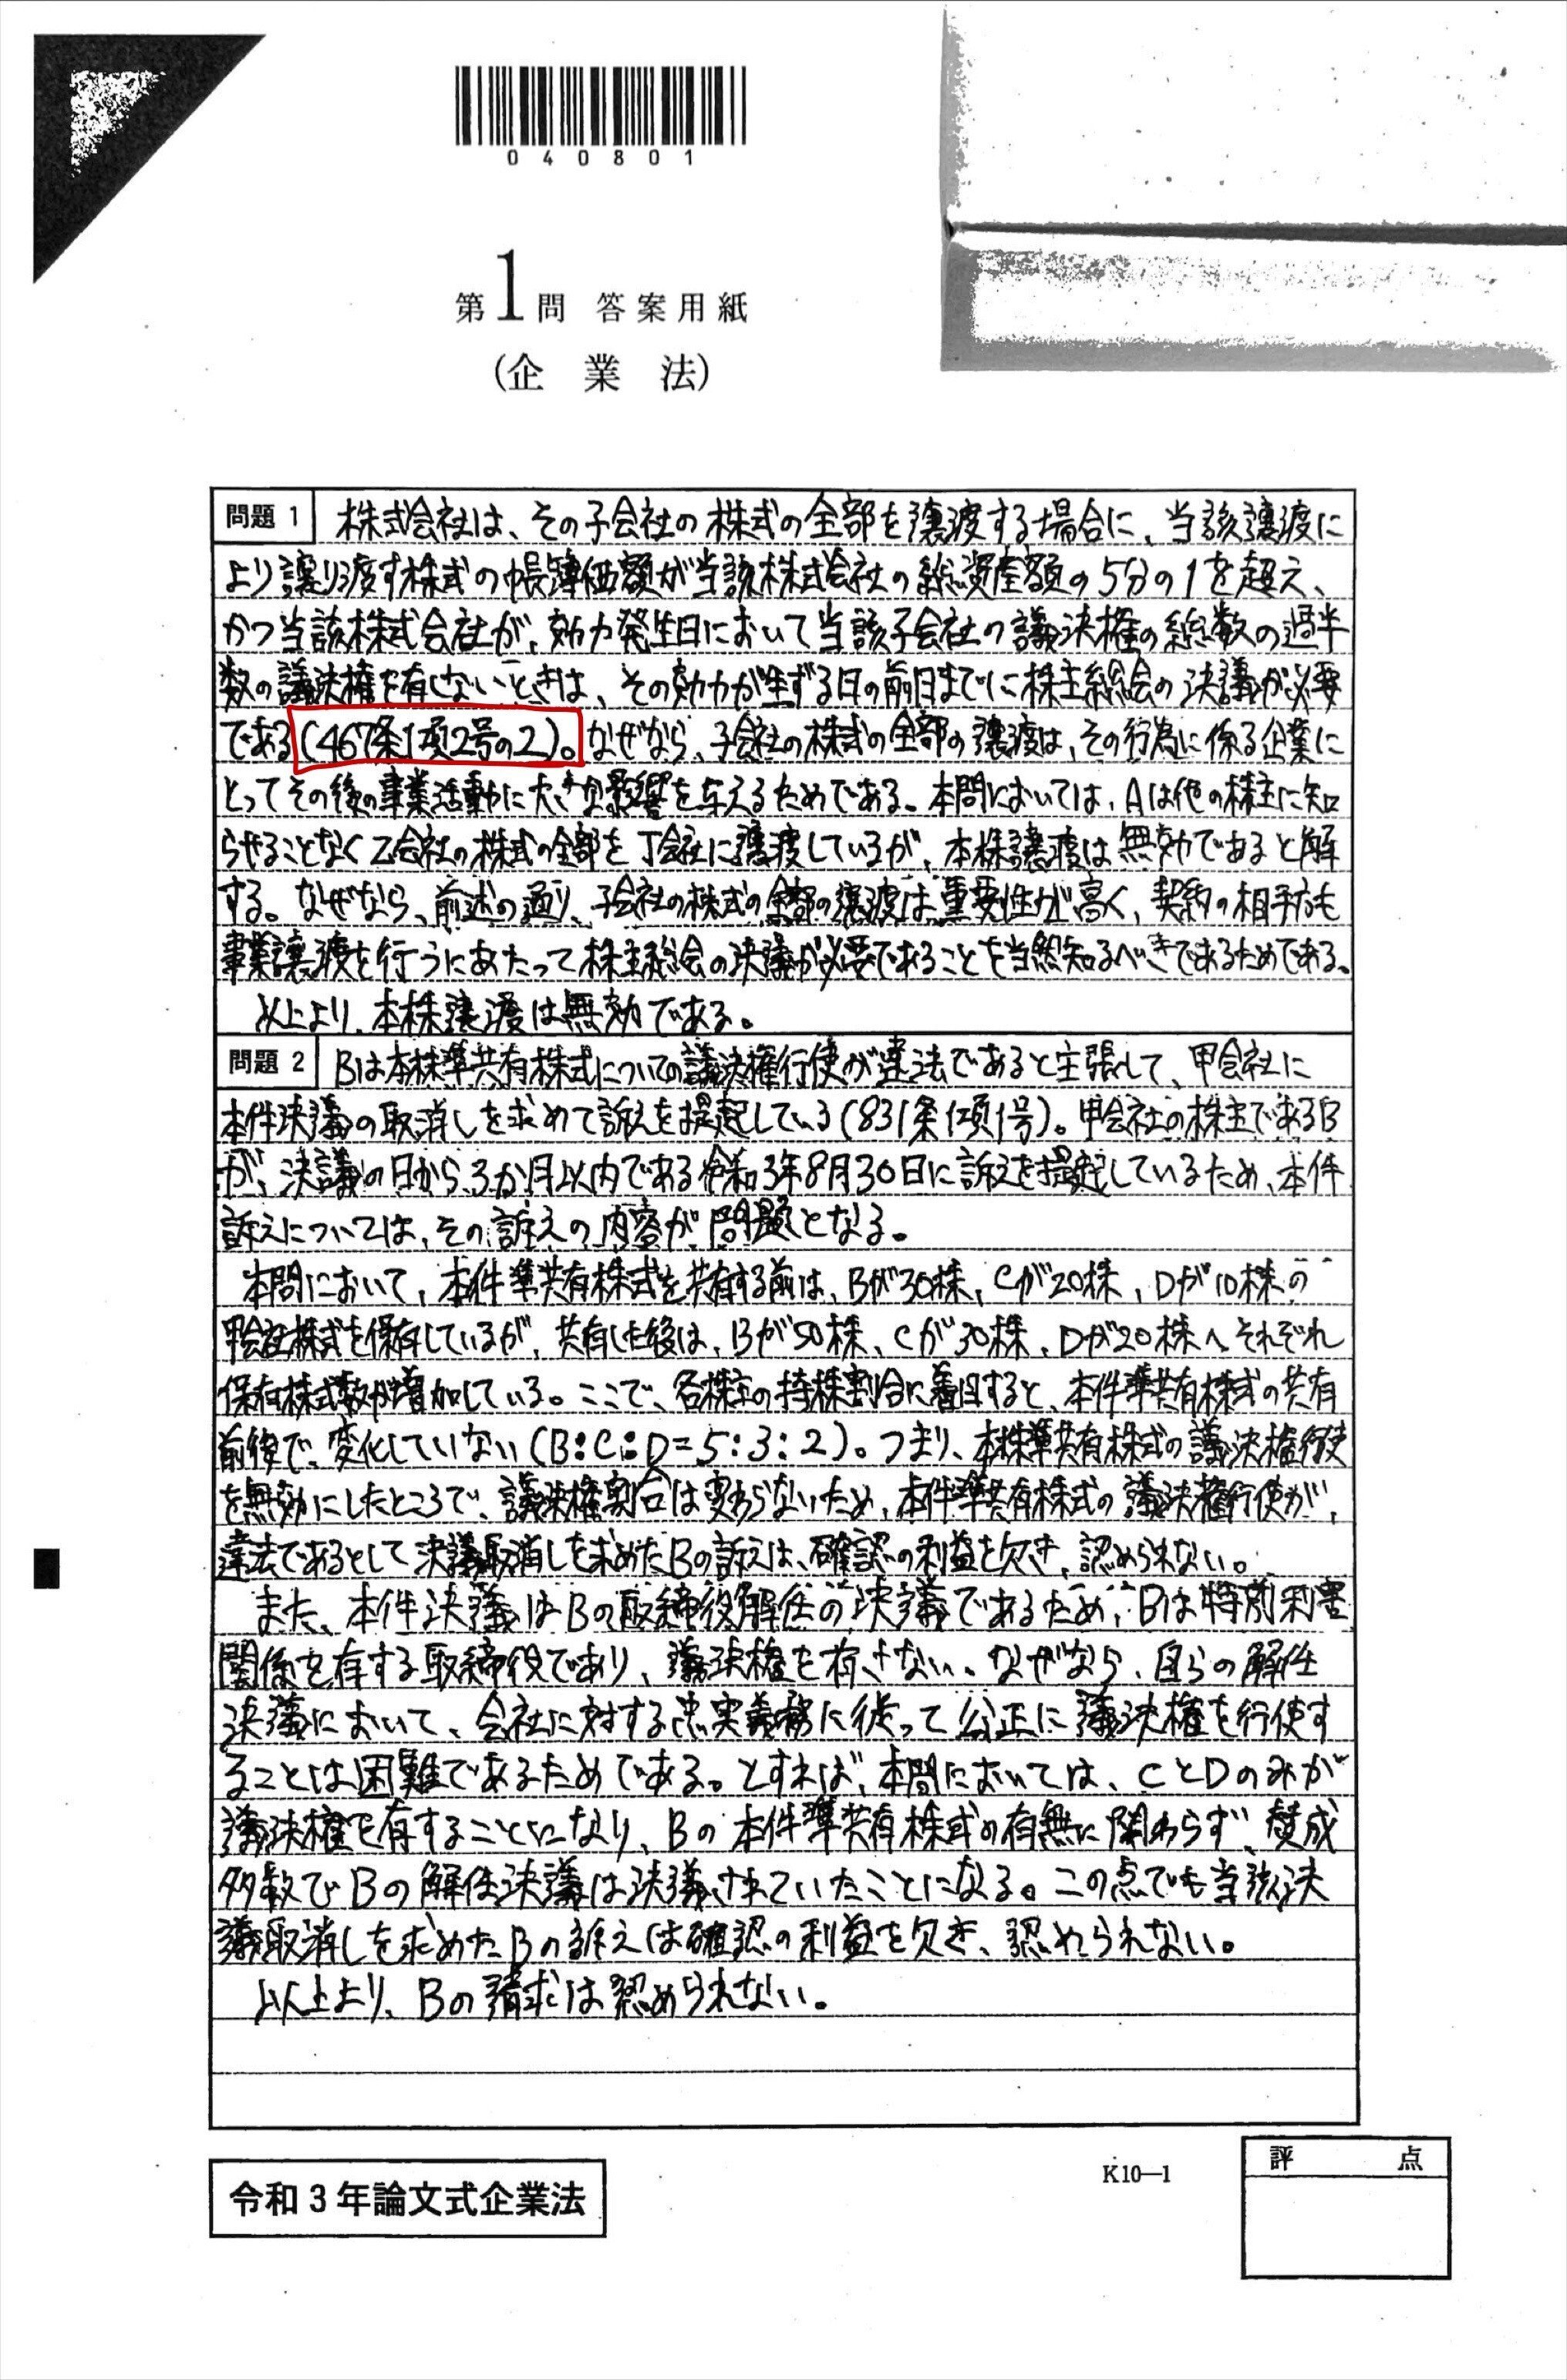 040801
第1問 答案用紙
(企業法)
問題 1 株式会社は、その子会社の株式の全部を譲渡する場合に、当該譲渡に
より譲り渡す株式の帳簿価額が当該株式会社の総資産額の5分の1を超え、
かつ当該株式会社が、効力発生日において当該子会社の議決権の総数の過半
数の議決権を有しないときは、その効力が生ずる日の前日までに株主総会の決議が必要
である(467条1項2号の2)。なぜなら、子会社の株式の全部の譲渡は、その行為に係る企業に
とってその後の事業活動に大きな影響を与えるためである。本問においては、Aは他の株主に知
らせることなく乙会社の株式の全部を丁会社に譲渡しているが、本株譲渡は無効であると解
する。なぜなら、前述の通り、子会社の株式の全部の譲渡は重要性が高く、契約の相手方も
事業譲渡を行うにあたって株主総会の決議が必要であることを当然知るべきであるためである。
以上より、本株譲渡は無効である。
問題 2 Bは本株準共有株式についての議決権行使が違法であると主張して、甲会社に
本件決議の取消しを求めて訴えを提起している(831条1項1号)。甲会社の株主であるB
が、決議の日から3か月以内である令和3年8月30日に訴えを提起しているため、本件
訴えについては、その訴えの内容が問題となる。
本問において、本件準共有株式を共有する前は、Bが30株、Cが20株、Dが10株の
甲会社株式を保有しているが、共有した後は、Bが50株、Cが30株、Dが20株へそれぞれ
保有株式数が増加している。ここで、各株主の持株割合に着目すると、本件準共有株式の共有
前後で、変化していない(B:C:D=5:3:2)。つまり、本株準共有株式の議決権行使
を無効にしたところで、議決権割合は変わらないため、本件準共有株式の議決権行使が、
違法であるとして決議取消しを求めたBの訴えは、確認の利益を欠き、認められない。
また、本件決議はBの取締役解任の決議であるため、Bは特別利害
関係を有する取締役であり、議決権を有さない。なぜなら、自らの解任
決議において、会社に対する忠実義務に従って公正に議決権を行使す
ることは困難であるためである。とすれば、本問においては、CとDのみが
議決権を有することになり、Bの本件準共有株式の有無に関わらず、賛成
多数でBの解任決議は決議されていたことになる。この点でも当該決
議取消しを求めたBの訴えは確認の利益を欠き、認められない。
以上より、Bの請求は認められない。
令和3年論文式企業法
K10—1
評 点